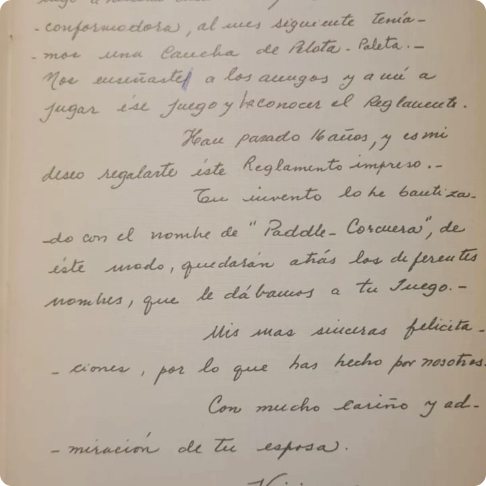 conformadora, al mes siguiente tenía-
mos una Cancha de Pelota-Paleta.-
Nos enseñaste a los amigos y a mí a
jugar ése juego y conocer el Reglamento.
Han pasado 16 años, y es mi
deseo regalarte éste Reglamento impreso.-
Tu invento lo he bautiza-
do con el nombre de "Paddle-Corcuera", de
éste modo, quedarán atrás los diferentes
nombres, que le dábamos a tu Juego.-
Mis mas sinceras felicita-
-ciones, por lo que has hecho por nosotros.
Con mucho cariño y ad-
-miración de tu esposa.